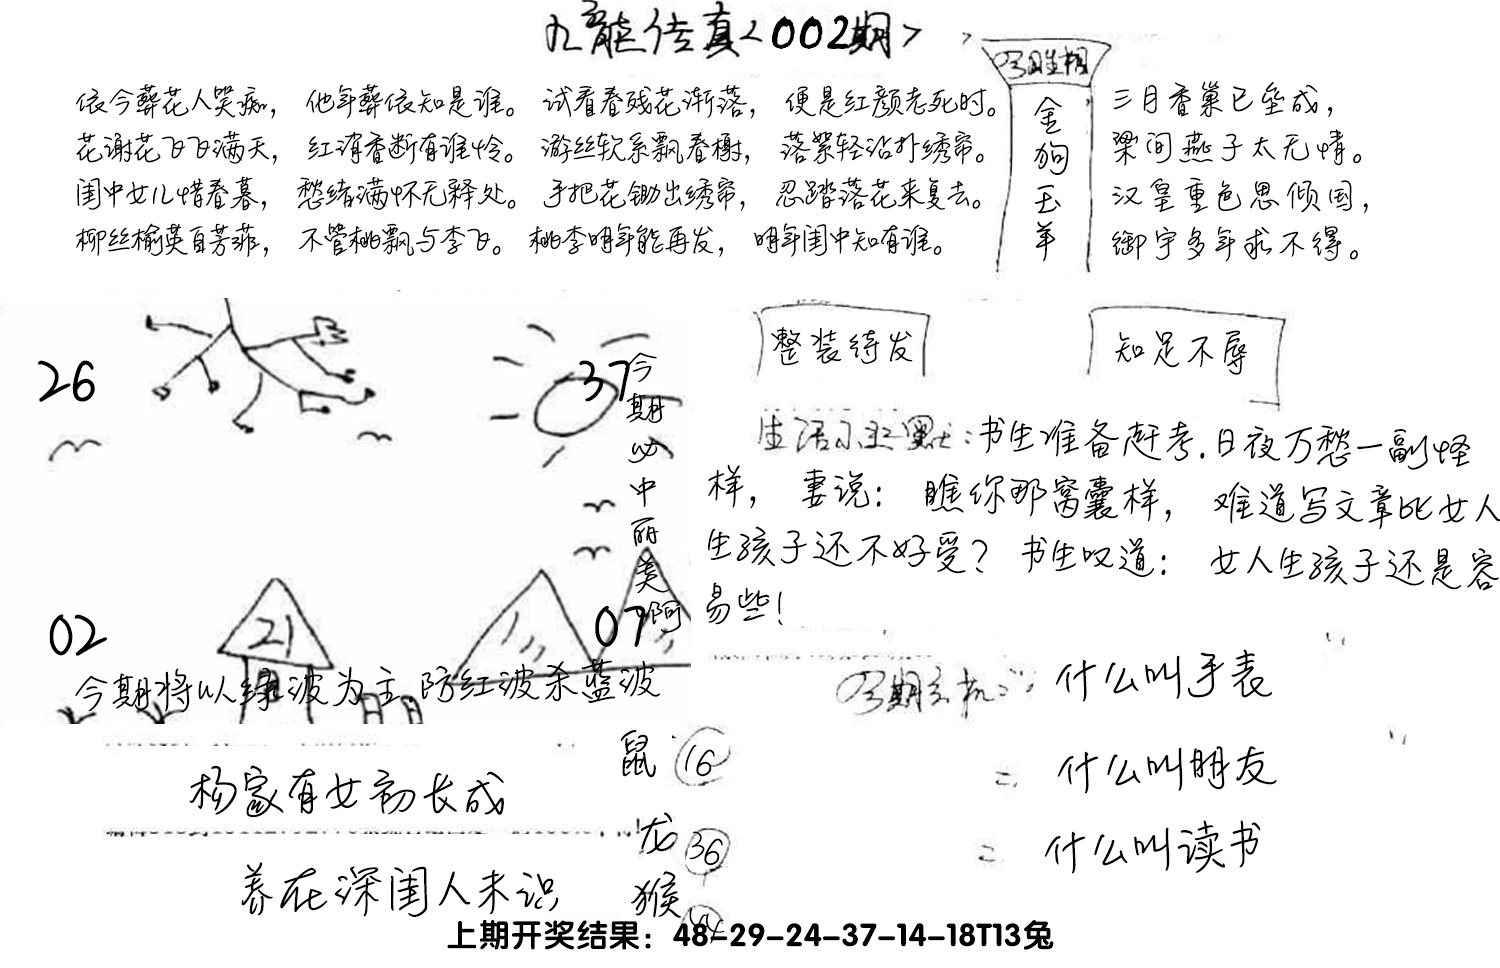 九龍传真<002期>
依今葬花人笑痴， 他年葬依知是谁。 试看春残花渐落， 便是红颜老死时。
花谢花飞飞满天， 红消香断有谁怜。 游丝软系飘春榭， 落絮轻沾扑绣帘。
闺中女儿惜春暮， 愁绪满怀无释处。 手把花锄出绣帘， 忍踏落花来复去。
柳丝榆荚自芳菲， 不管桃飘与李飞。 桃李明年能再发， 明年闺中知有谁。
金狗玉羊
三月香巢已垒成，
梁间燕子太无情。
汉皇重色思倾国，
御宇多年求不得。
26
37
02
21
07
今期必中丽美啊
今期将以绿波为主防红波杀蓝波
整装待发
知足不辱
生活小幽默：书生准备赶考，日夜万愁一副怪
样， 妻说： 瞧你那窝囊样， 难道写文章比女人
生孩子还不好受？ 书生叹道： 女人生孩子还是容
易些！
今期玄机：什么叫手表
= 什么叫朋友
= 什么叫读书
杨家有女初长成
养在深闺人未识
鼠 16
龙 36
猴
上期开奖结果：48-29-24-37-14-18T13兔